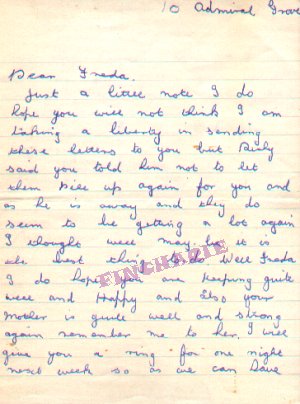 10 Admiral Grove
Dear Freda.
Just a little note I do
hope you will not think I am
taking a liberty in sending
these letters to you but Rirly
said you told him not to let
them Pile up again for you and
as he is away and they do
seem to be getting a lot again
I thought well may be it is
the best thing to do Well Freda
FINCHAZIE
I do hope you are keeping quite
well and Happy and also your
Mother is quite well and strong
again remember me to her. I will
give you a ring for one night
next week so as we can have